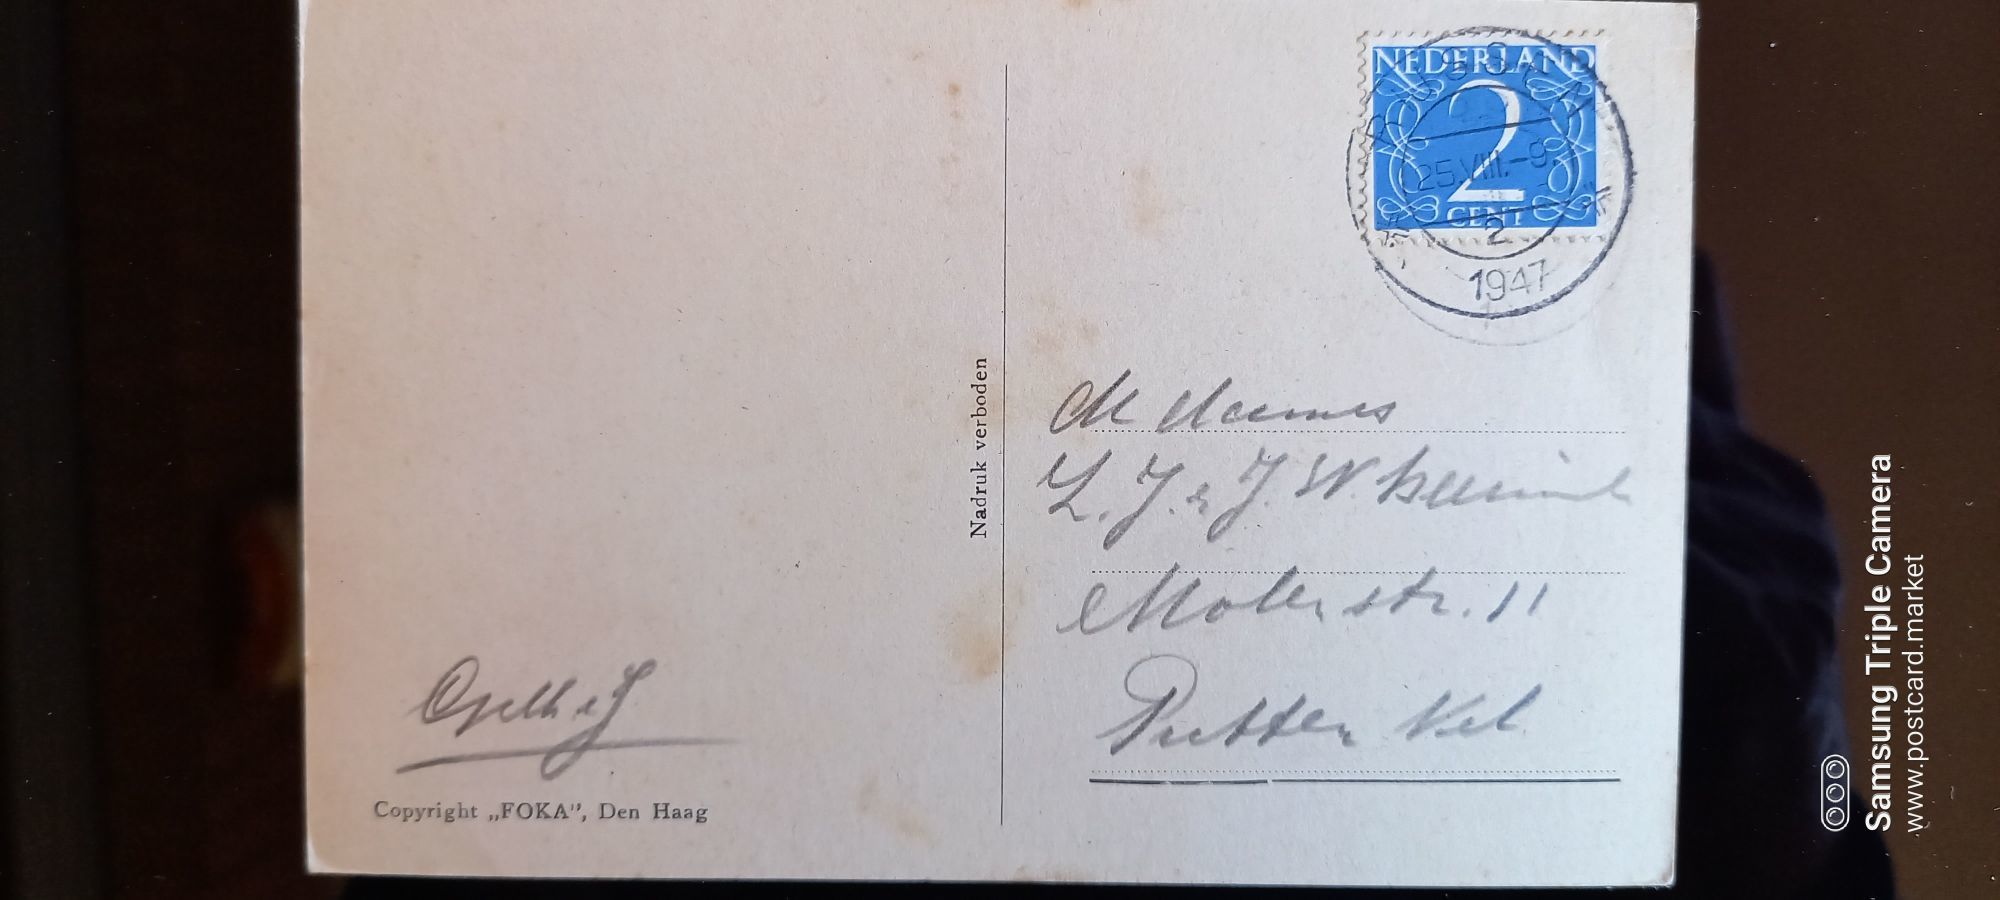 NEDERLAND
2
CENT
BUSSUM
25.VIII.-9
2
1947
Nadruk verboden
L. J. J. W.
Molenstr. 11
Putten Vel.
Copyright „FOKA”, Den Haag
Samsung Triple Camera
www.postcard.market